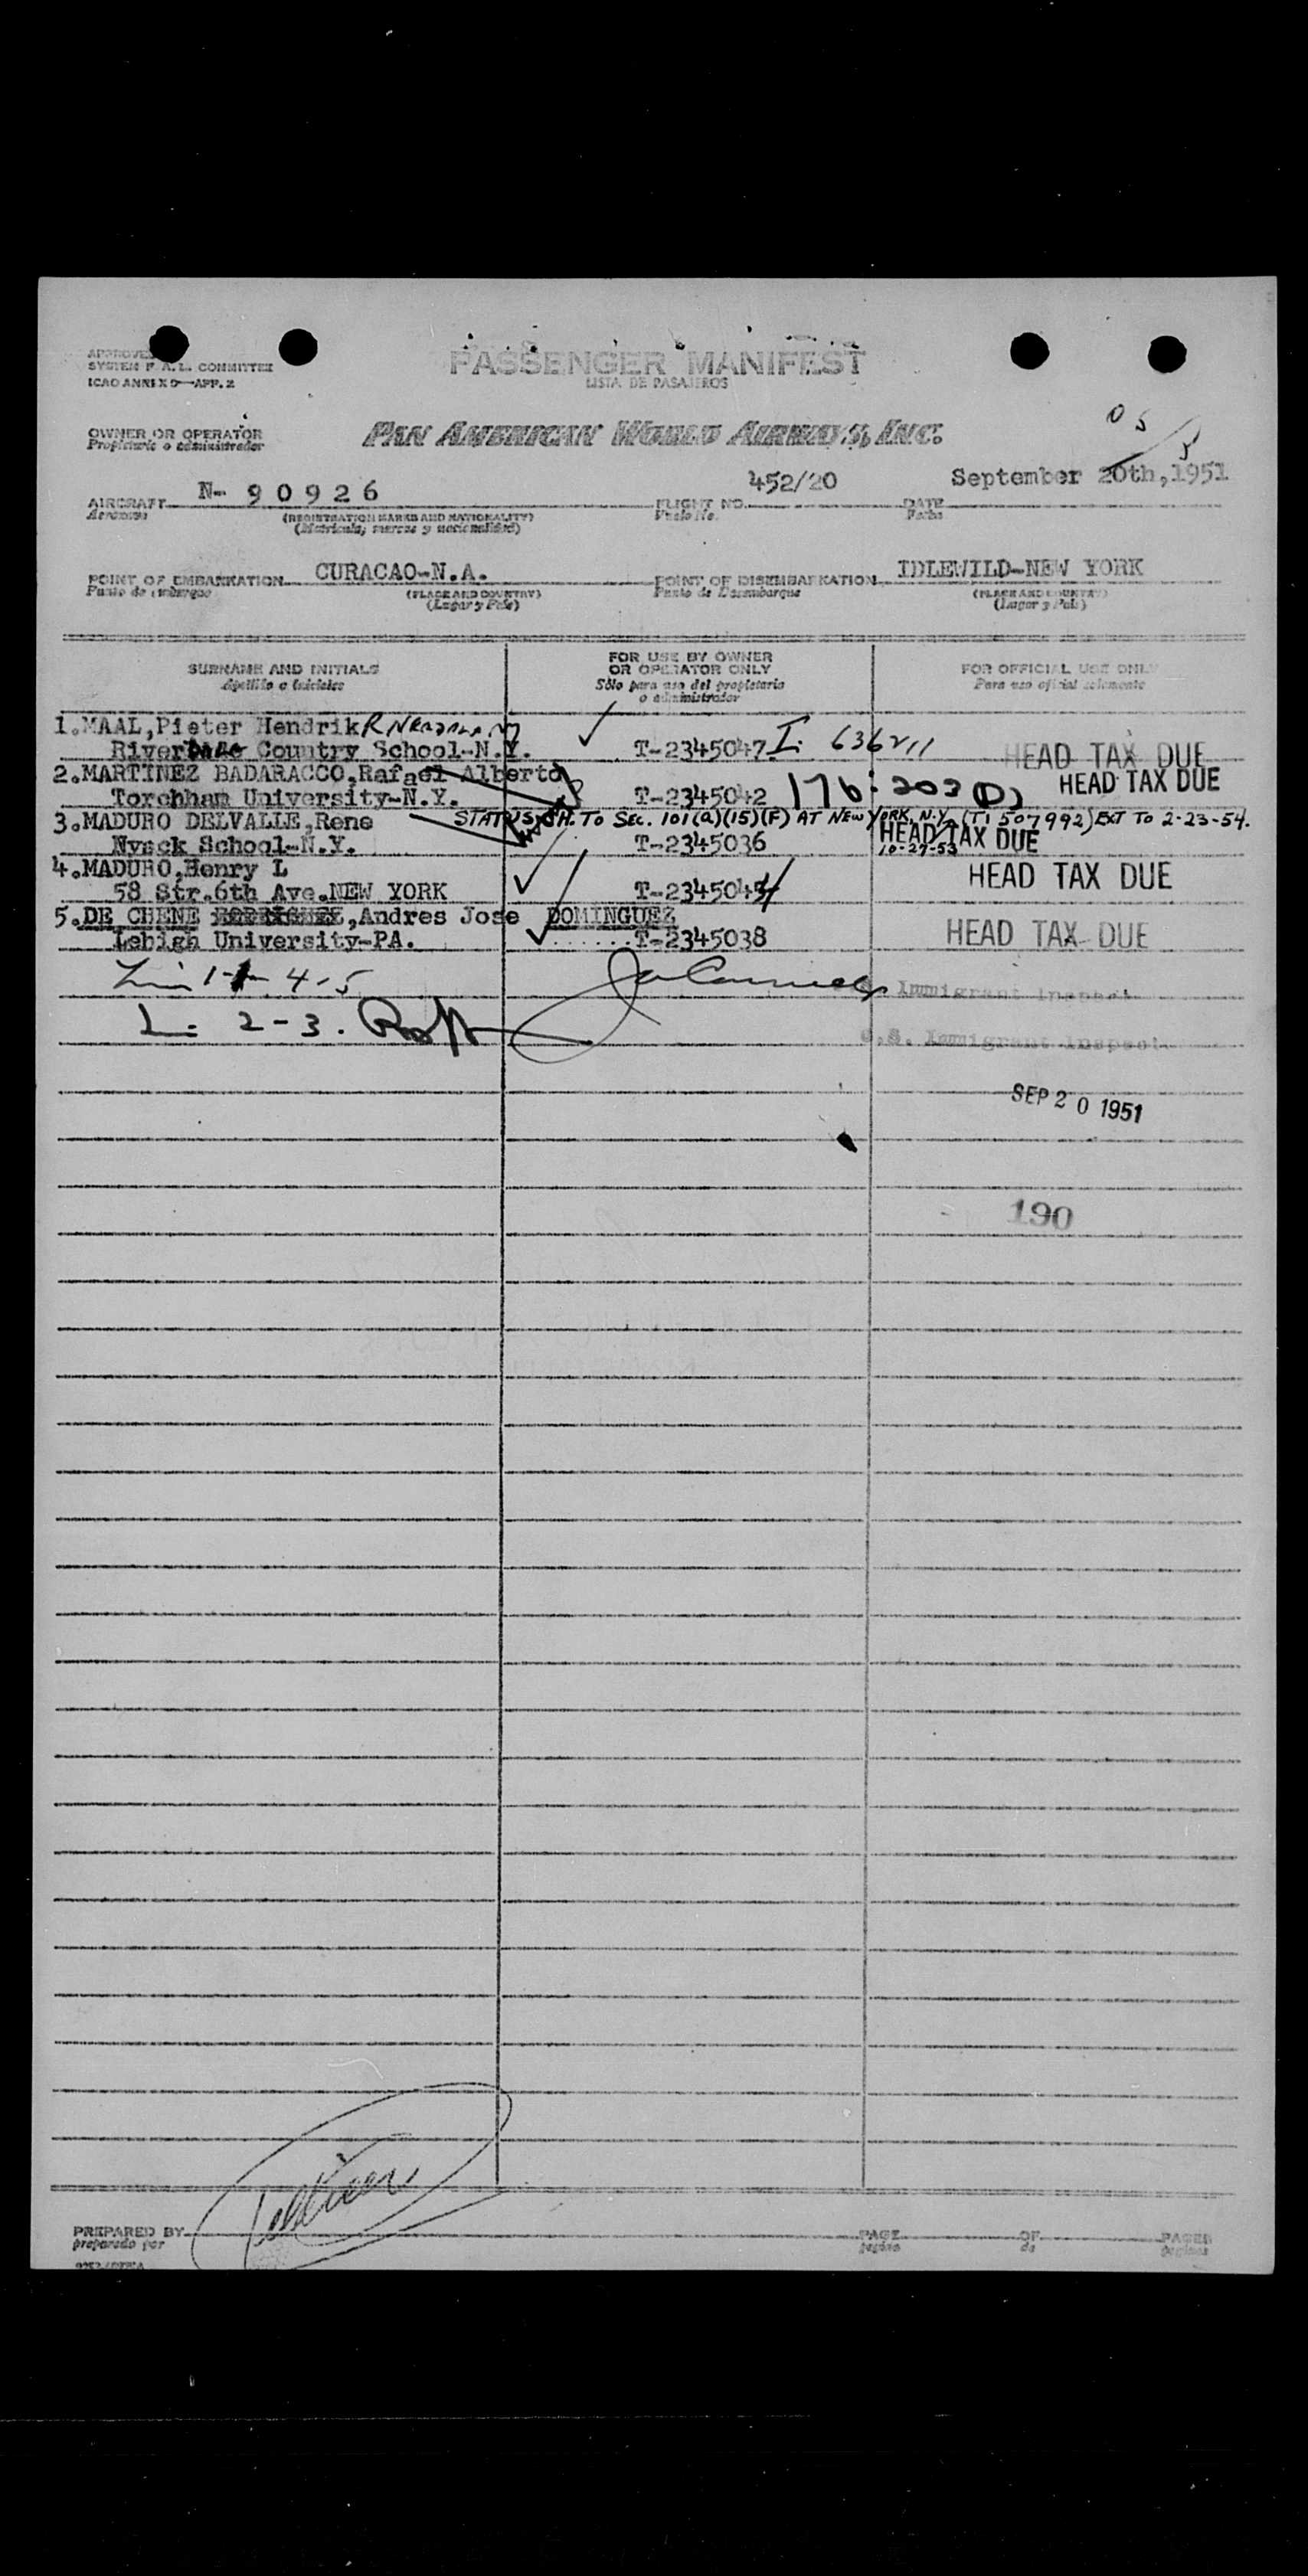 APPROVED
SYSTEM F. A. L. COMMITTEE
ICAO ANNEX 9—APP. 2
PASSENGER MANIFEST
LISTA DE PASAJEROS
OWNER OR OPERATOR
Propietario o administrador
PAN AMERICAN WORLD AIRWAYS, INC.
AIRCRAFT N- 90926
Aeronave
(REGISTRATION MARKS AND NATIONALITY)
(Matricula, marcas y nacionalidad)
FLIGHT NO. 452/20
Vuelo No.
DATE September 20th,1951
Fecha
POINT OF EMBARKATION CURACAO-N.A.
Punto de embarque
(PLACE AND COUNTRY)
(Lugar y País)
POINT OF DISEMBARKATION IDLEWILD-NEW YORK
Punto de Desembarque
(PLACE AND COUNTRY)
(Lugar y País)
SURNAME AND INITIALS
Apellido e iniciales
FOR USE BY OWNER
OR OPERATOR ONLY
Sólo para uso del propietario
o administrador
FOR OFFICIAL USE ONLY
Para uso oficial solamente
1.MAAL,Pieter Hendrik
Riverdale Country School-N.Y. T-2345047 I. 636211 HEAD TAX DUE
2.MARTINEZ BADARACCO,Rafael Alberto
Torchham University-N.Y. T-2345042 176:203(D) HEAD TAX DUE
STATUS CH. TO SEC. 101(a)(15)(F) AT NEW YORK, N.Y. (T1507992) EXT TO 2-23-54.
3.MADURO DELVALLE,Rene
Nyack School-N.Y. T-2345036 HEAD TAX DUE
10-27-53
4.MADURO,Henry L
58 Str.6th Ave.NEW YORK T-2345044 HEAD TAX DUE
5.DE CHENE ,Andres Jose DOMINGUEZ
Lehigh University-PA. T-2345038 HEAD TAX DUE
1- 4-5
Immigrant Inspect
L: 2-3.
U.S. Immigrant Inspect
SEP 20 1951
190
PREPARED BY
preparado por
PAGE OF PAGES
página de páginas